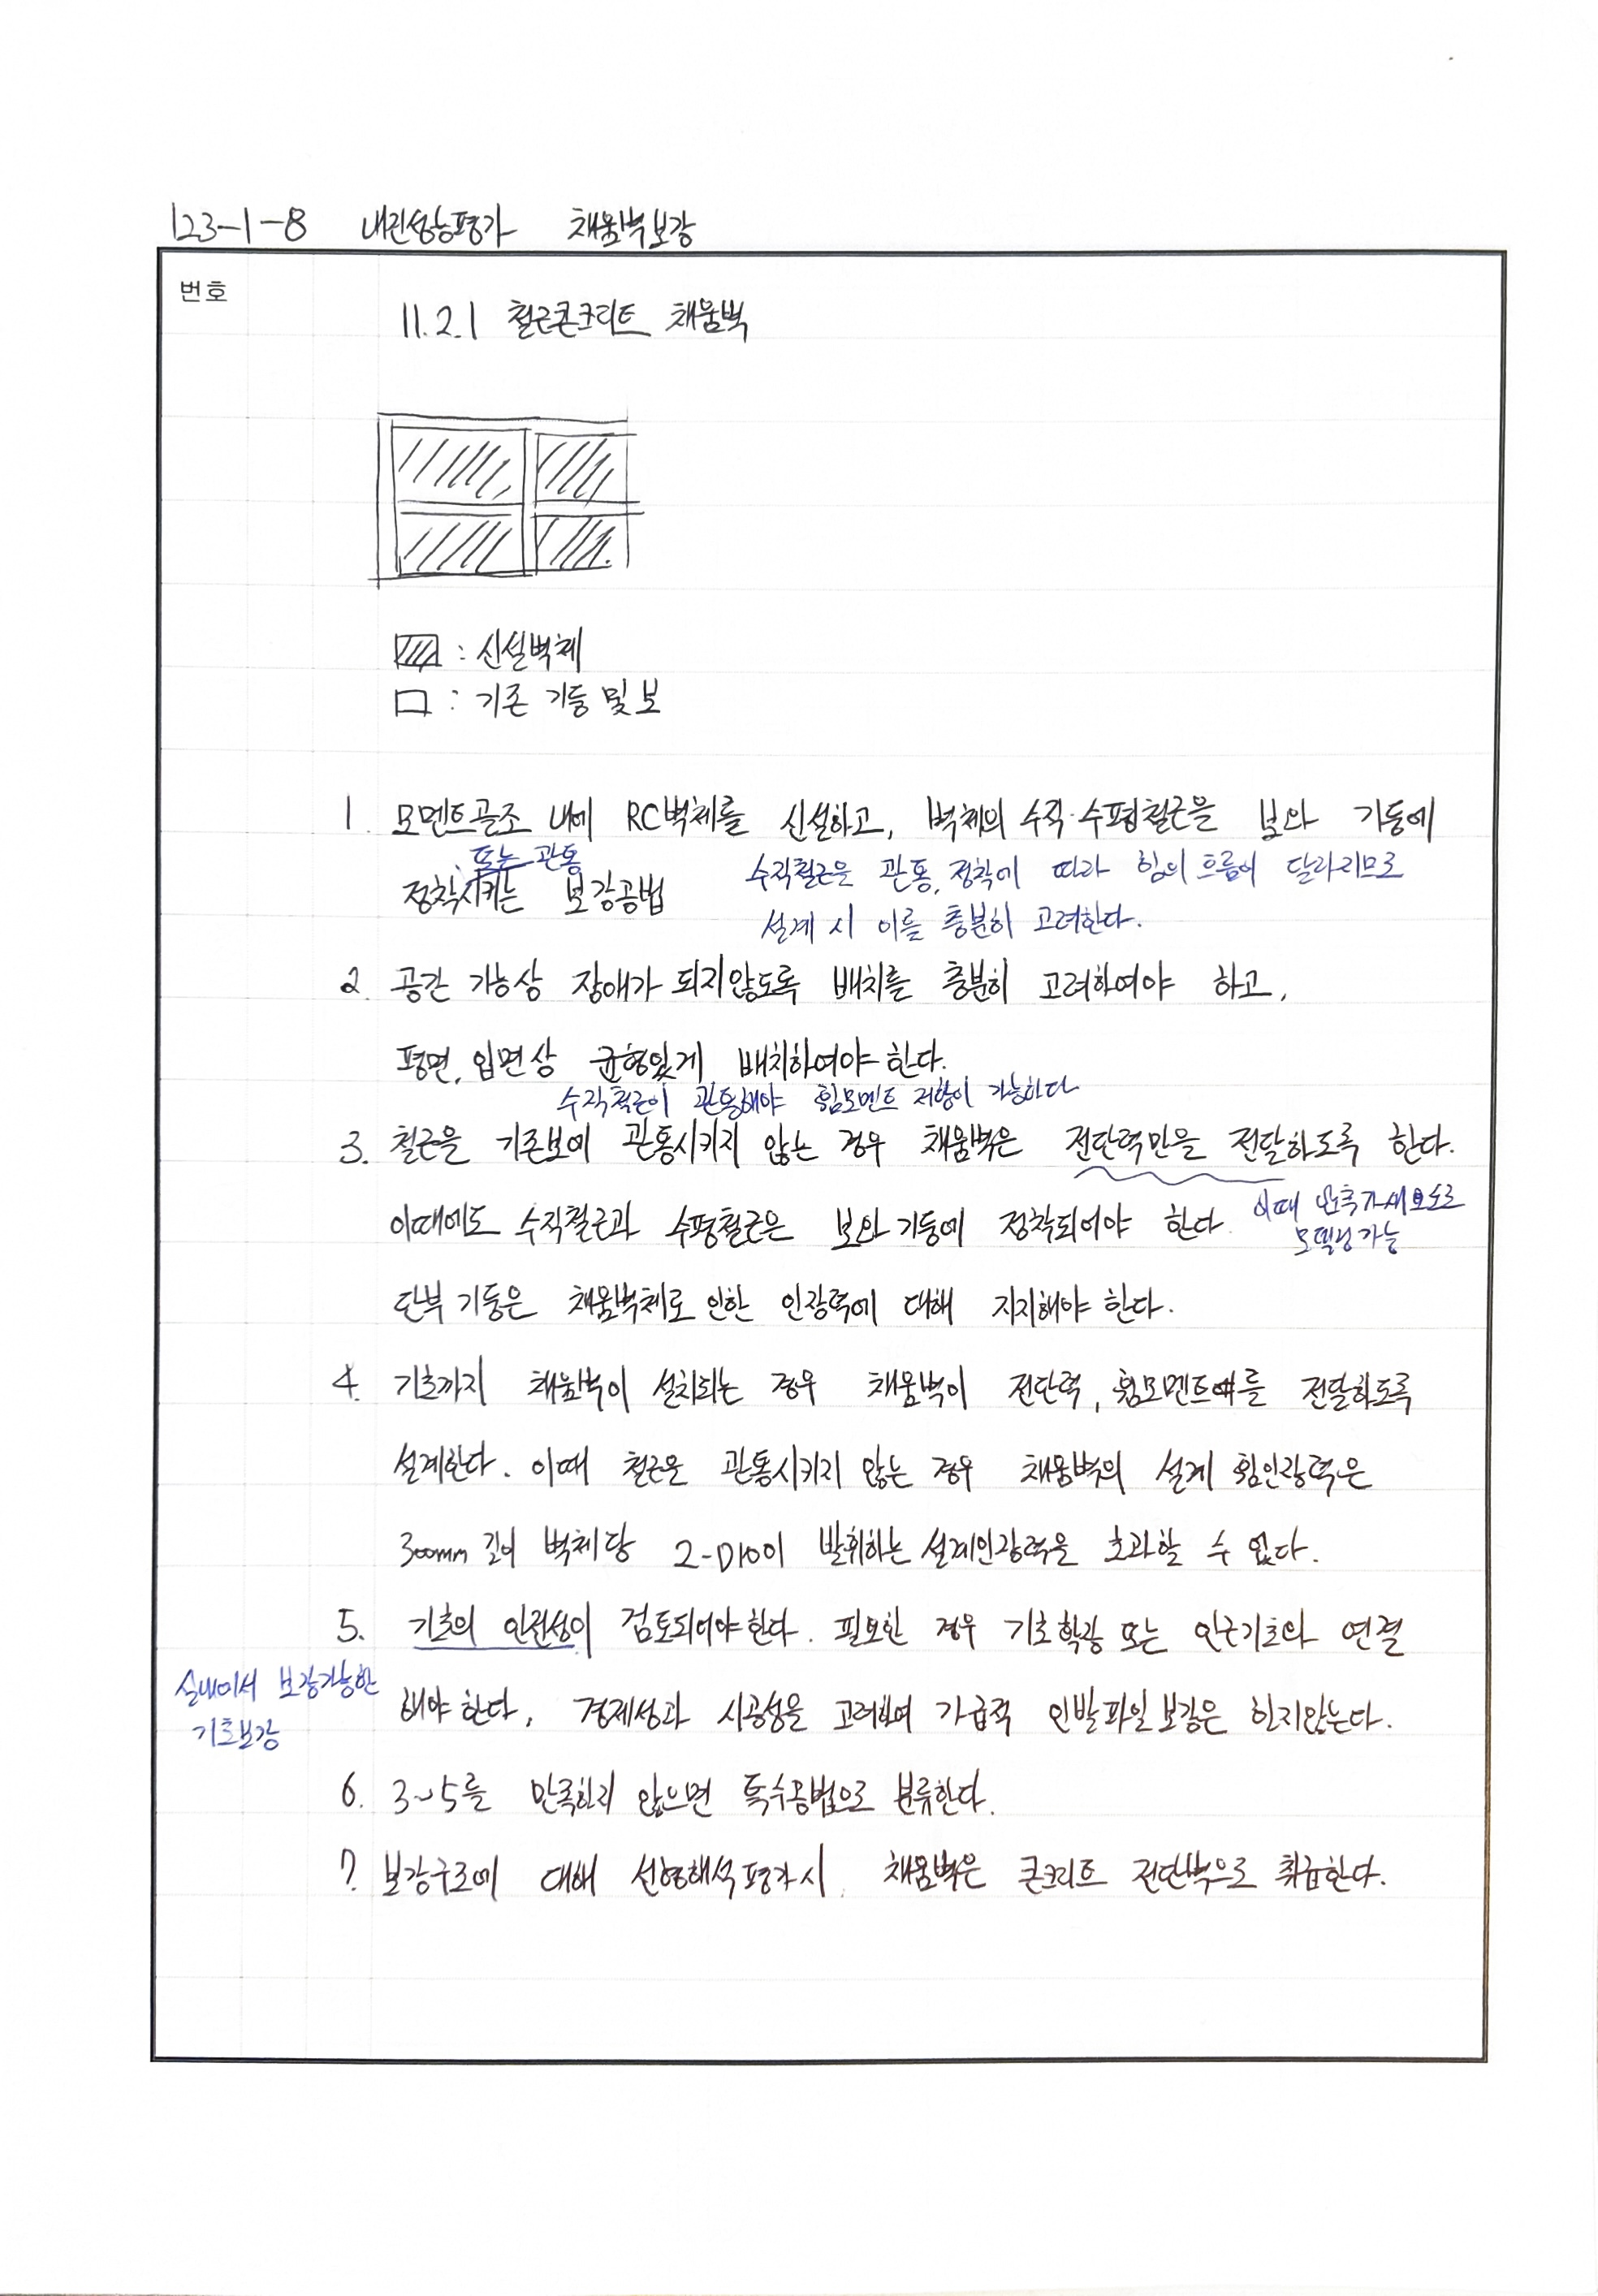 123-1-8 내진성능평가 채움벽보강
번호
11.2.1 철근콘크리트 채움벽
: 신설벽체
: 기존 기둥 및 보
1. 모멘트골조 내에 RC벽체를 신설하고, 벽체의 수직·수평철근을 보와 기둥에
또는 관통
정착시키는 보강공법
수직철근은 관통, 정착에 따라 힘의 흐름이 달라지므로
설계 시 이를 충분히 고려한다.
2. 공간 기능상 장애가 되지않도록 배치를 충분히 고려하여야 하고,
평면, 입면상 균형있게 배치하여야 한다.
수직철근이 관통해야 휨모멘트 저항이 가능하다
3. 철근을 기존보에 관통시키지 않는 경우 채움벽은 전단력만을 전달하도록 한다.
이때에도 수직철근과 수평철근은 보와 기둥에 정착되어야 한다.
이때 압축가새요소로
모델링가능
단부 기둥은 채움벽체로 인한 인장력에 대해 지지해야 한다.
4. 기초까지 채움벽이 설치되는 경우 채움벽이 전단력, 휨모멘트를 전달하도록
설계한다. 이때 철근은 관통시키지 않는 경우 채움벽의 설계 휨인장력은
300mm 길이 벽체당 2-D10이 발휘하는 설계인장력을 초과할 수 없다.
5. 기초의 안전성이 검토되어야한다. 필요한 경우 기초확장 또는 인근기초와 연결
실내에서 보강가능한
기초보강
해야 한다, 경제성과 시공성을 고려하여 가급적 인발파일보강은 하지않는다.
6. 3~5를 만족하지 않으면 특수공법으로 분류한다.
7. 보강구조에 대해 선형해석평가시, 채움벽은 콘크리트 전단벽으로 취급한다.